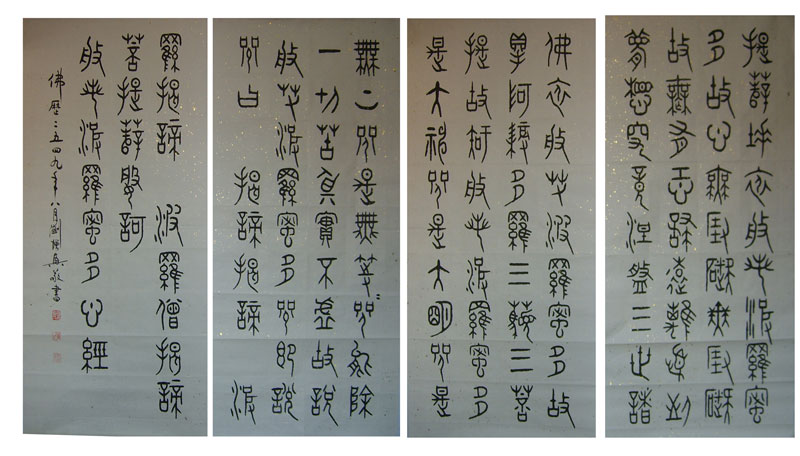 提薩埵依般若波羅蜜
多故心無罣礙無罣礙
故無有恐怖遠離顛倒
夢想究竟涅槃三世諸
佛依般若波羅蜜多故
得阿耨多羅三藐三菩
提故知般若波羅蜜多
是大神咒是大明咒是
無上咒是無等〻咒能除
一切苦真實不虛故說
般若波羅蜜多咒即說
咒曰 揭諦揭諦 波
羅揭諦 波羅僧揭諦
菩提薩婆訶
般若波羅蜜多心經
佛歷二五四九年八月敬書